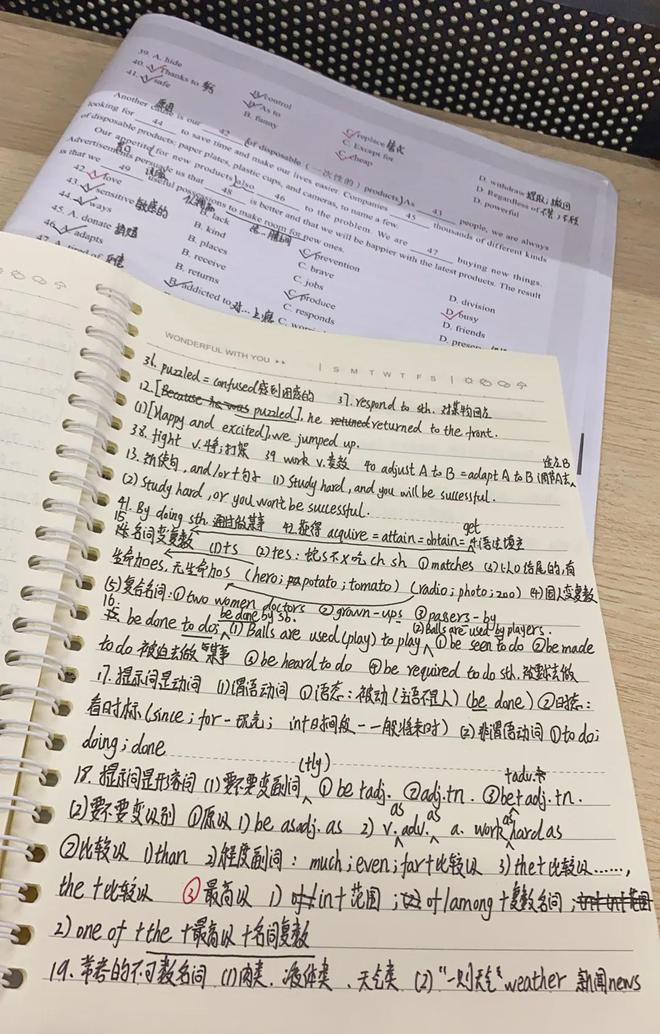 39. A. hide
40. A. Thanks to
41. A. safe
B. control
B. As to
B. funny
C. replace 替代
C. Except for
C. cheap
D. withdraw 提取;撤回
D. Regardless of 不管;不顾
D. powerful
Another 原因 is our 42 for disposable (一次性的) products. As 43 people, we are always
looking for 44 to save time and make our lives easier. Companies 45 thousands of different kinds
of disposable products: paper plates, plastic cups, and cameras, to name a few.
Our appetite for new products also 46 to the problem. We are 47 buying new things.
Advertisements persuade us that 48 is better and that we will be happier with the latest products. The result
is that we 49 useful possessions to make room for new ones.
42. A. love
43. A. sensitive 敏感的
44. A. ways
45. A. donate 捐赠
46. A. adapts
B. lack
B. kind
B. places
B. receive
B. returns
B. addicted to 对…上瘾
C. prevention
C. brave
C. jobs
C. produce
C. responds
D. division
D. busy
D. friends
WONDERFUL WITH YOU
S M T W T F S
36. puzzled = confused 感到困惑的 37. respond to sth. 对某物回应
12. [Because he was puzzled], he retuned returned to the front.
(1) [Happy and excited], we jumped up.
38. fight v. 打架 39 work v. 奏效 40 adjust A to B = adapt A to B (调节A去适应B
13. 祈使句, and/or+句子 (1) Study hard, and you will be successful.
(2) Study hard, or you won't be successful.
41. By doing sth. 通过做某事 42. 获得 acquire = attain = obtain = get
15. 名词变复数 (1) +s (2) +es: s x ch sh ① matches (3) 以o结尾的, 有
生命加es, 无生命加s (hero; potato; tomato) (radio; photo; zoo) (4) 国人变复数
(5) 复合名词: ① two women doctors ② grown-ups ③ passers-by
16. be done to do be done by sb. (1) Balls are used (play) to play (2) Balls are used by players. ① be seen to do ② be made
to do 被迫去做某事 ③ be heard to do ④ be required to do sth. 被要求做
17. 提示词是动词 (1) 谓语动词 ① 语态: 被动 (主语不是人) (be done) ② 时态:
看时标 (since; for - 现完; in+时间段 - 一般将来时) (2) 非谓语动词 ① to do;
doing; done
18. 提示词是形容词 (1) 要不要变副词 (+ly) ① be+adj. ② adj.+n. ③ be+adv.+adj.+n.
(2) 要不要变级别 ① 原级 1) be as adj. as 2) v. as adv. as a. work as hard as
② 比较级 1) than 2) 程度副词: much; even; far+比较级 3) the+比较级……,
the+比较级 ③ 最高级 1) in+范围; of/among+复数名词;
2) one of + the + 最高级 + 名词复数
19. 常考的不可数名词 (1) 肉类、液体类、天气类 (2) "一则天气" weather 新闻 news